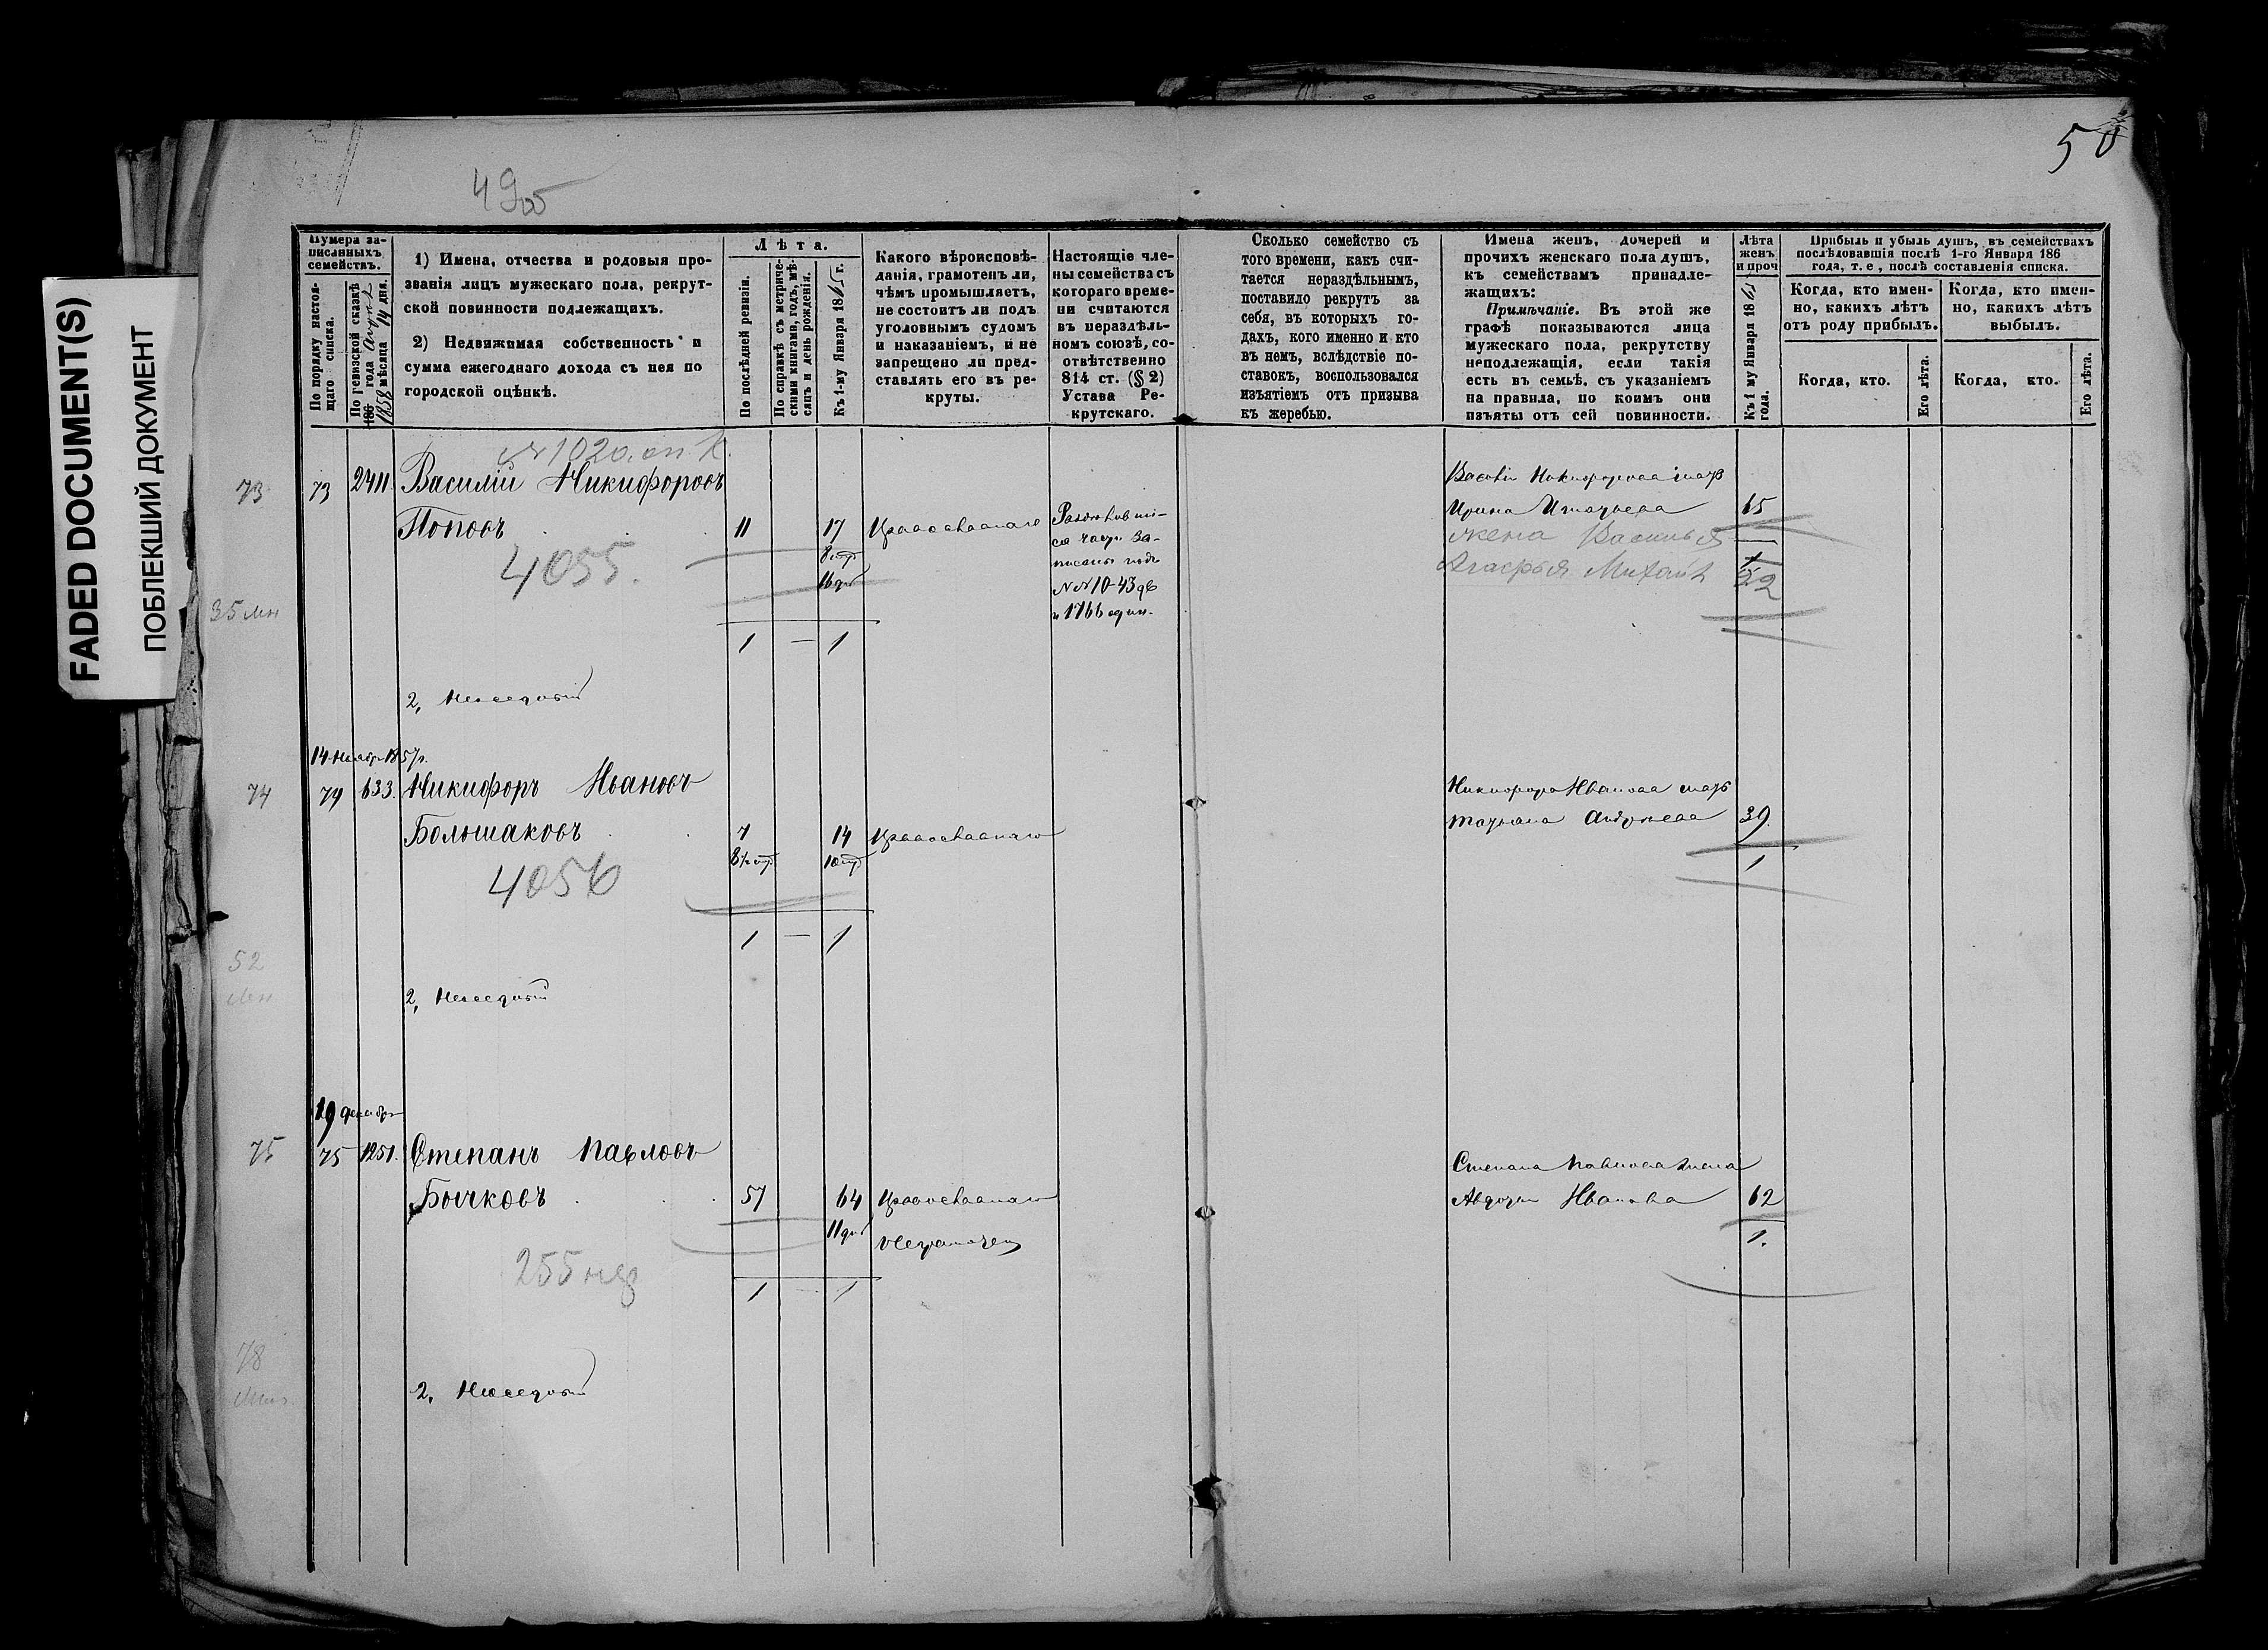 50
4900
FADED DOCUMENT(S)
ПОБЛЕКШИЙ ДОКУМЕНТ
Нумера за-
писанныхъ
семействъ.
По порядку настоя-
щаго списка.
По ревизской сказкѣ
186 года
1858 мѣсяца 14 дня.
1) Имена, отчества и родовыя про-
званія лицъ мужескаго пола, рекрут-
ской повинности подлежащихъ.
2) Недвижимая собственность и
сумма ежегоднаго дохода съ нея по
городской оцѣнкѣ.
Лѣта.
По послѣдней ревизіи.
По справкѣ съ метриче-
скими книгами, годъ, мѣ-
сяцъ и день рожденія.
Къ 1-му Января 1865 г.
Какого вѣроисповѣ-
данія, грамотенъ ли,
чѣмъ промышляетъ,
не состоитъ ли подъ
уголовнымъ судомъ
и наказаніемъ, и не
запрещено ли пред-
ставлять его въ ре-
круты.
Настоящіе чле-
ны семейства съ
котораго време-
ни считаются
въ нераздѣль-
номъ союзѣ, со-
отвѣтственно
814 ст. (§ 2)
Устава Ре-
крутскаго.
Сколько семейство съ
того времени, какъ счи-
тается нераздѣльнымъ,
поставило рекрутъ за
себя, въ которыхъ го-
дахъ, кого именно и кто
въ немъ, вслѣдствіе по-
ставокъ, воспользовался
изъятіемъ отъ призыва
къ жеребью.
Имена женъ, дочерей и
прочихъ женскаго пола душъ,
къ семействамъ принадле-
жащихъ:
Примѣчаніе. Въ этой же
графѣ показываются лица
мужескаго пола, рекрутству
неподлежащія, если такія
есть въ семьѣ, съ указаніемъ
на правила, по коимъ они
изъяты отъ сей повинности.
Лѣта
женъ
и проч
Къ 1 му Января 1865
года.
Прибыль и убыль душъ, въ семействахъ
послѣдовавшія послѣ 1-го Января 186
года, т. е., послѣ составленія списка.
Когда, кто имен-
но, какихъ лѣтъ
отъ роду прибылъ.
Когда, кто имен-
но, какихъ лѣтъ
выбылъ.
Когда, кто.
Его лѣта.
Когда, кто.
Его лѣта.
73 73 2411 Василій Никифоровъ
Поповъ 11 17 Православнаго
4055.
1 — 1
Василія Никифорова мать
Ирина Игнатьева 65
жена Василья
Агафья Михайл 22
№№ 10-43
и 1766 один.
35
2, Неоседлый
14 Ноябр. 1857 г.
74 74 633. Никифоръ Ивановъ
Большаковъ 7 14 Православнаго
4056
1 — 1
Никифора Иванова мать
Татьяна Андреева 39.
1
52
2, Неоседлый
19 декабр
75 75 1251. Степанъ Павловъ
Бычковъ 57 64 Православнаго
Неграмотен
255
1 — 1
Степана Павлова жена
Авдотья Иванова 62
1.
78
2, Неоседлый